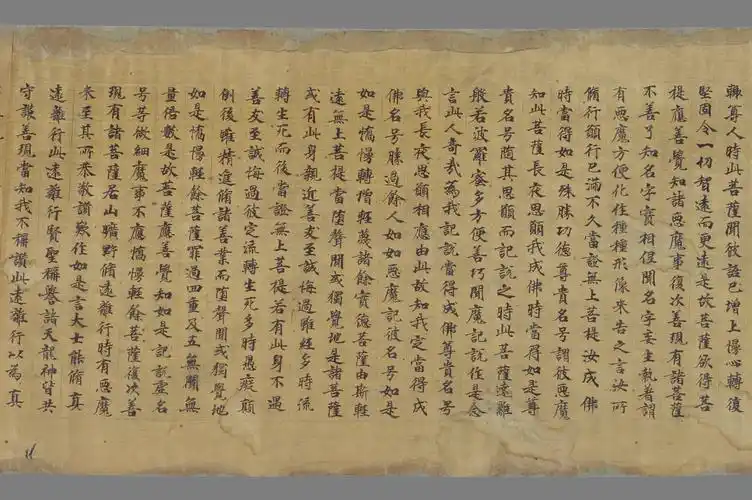 聊尊人時此菩薩聞彼語已增上慢心轉復
堅固令一切智遠而更遠是故菩薩欲得菩
提應善覺知諸惡魔事復次善現有諸菩薩
不善了知名字實相但聞名字妄生執著謂
有惡魔方便化作種種形像來告之言汝所
脩行願行已滿不久當證無上菩提汝成佛
時當得如是殊勝功德尊貴名号謂彼惡魔
知此菩薩長夜思願我成佛時當得如是尊
貴名号随其思願而記說之時此菩薩遠離
般若波羅蜜多方便善巧聞魔記說作是念
言此人奇哉為我記說當得成佛尊貴名号
與我長夜思願相應由此故知我定當得成
佛名号勝過餘人如如惡魔記彼名号如是
如是憍慢轉增輕蔑諸餘實德菩薩由斯輕
遠無上菩提當墮聲聞或獨覺地是諸菩薩
或有此身親近善友至誠悔過雖經多時流
轉生死而後當證無上菩提若有此身不遇
善友至誠悔過彼定流轉生死多時愚癡顛
倒後雖精進脩諸善業而墮聲聞或獨覺地
如是憍慢輕餘菩薩罪過四重及五無間無
量倍數是故菩薩應善覺知如是記說虛名
号等微細魔事不應憍慢輕餘菩薩復次善
現有諸菩薩居山曠野脩遠離行時有惡魔
來至其所恭敬讚歎作如是言大士能脩真
遠離行此遠離行賢聖稱譽諸天龍神皆共
守護善現當知我不稱讚此遠離行以為真